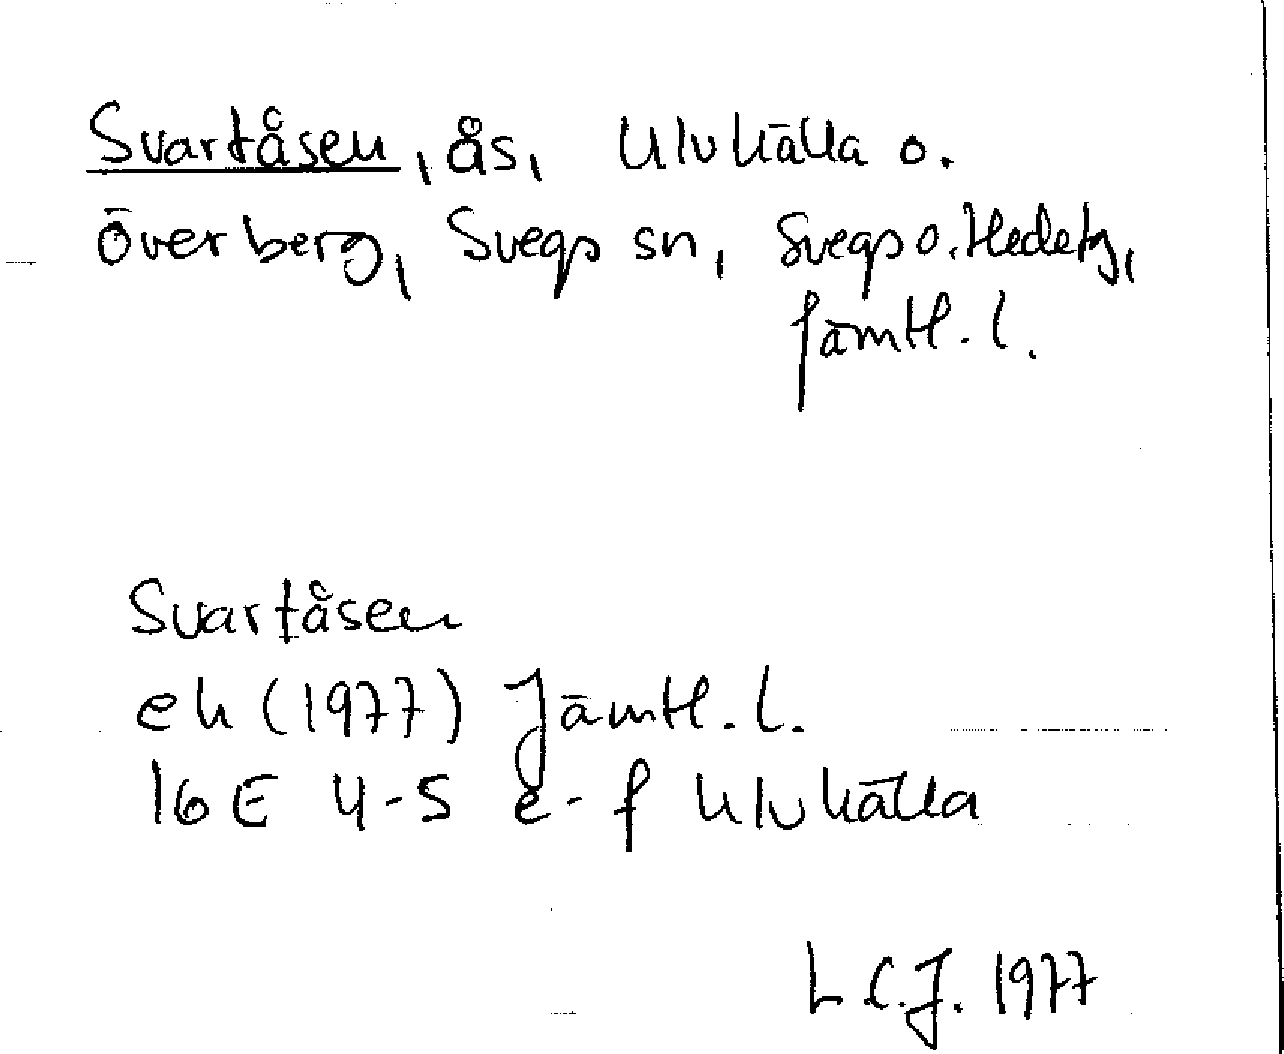 Svartåsen, ås, Ulvkälla o.
Överberg, Svegs sn, Svegs o. Hede tg,
Jämtl. l.
Svartåsen
ek (1977) Jämtl. l.
16 E 4-5 e-f Ulvkälla
L C.J. 1977